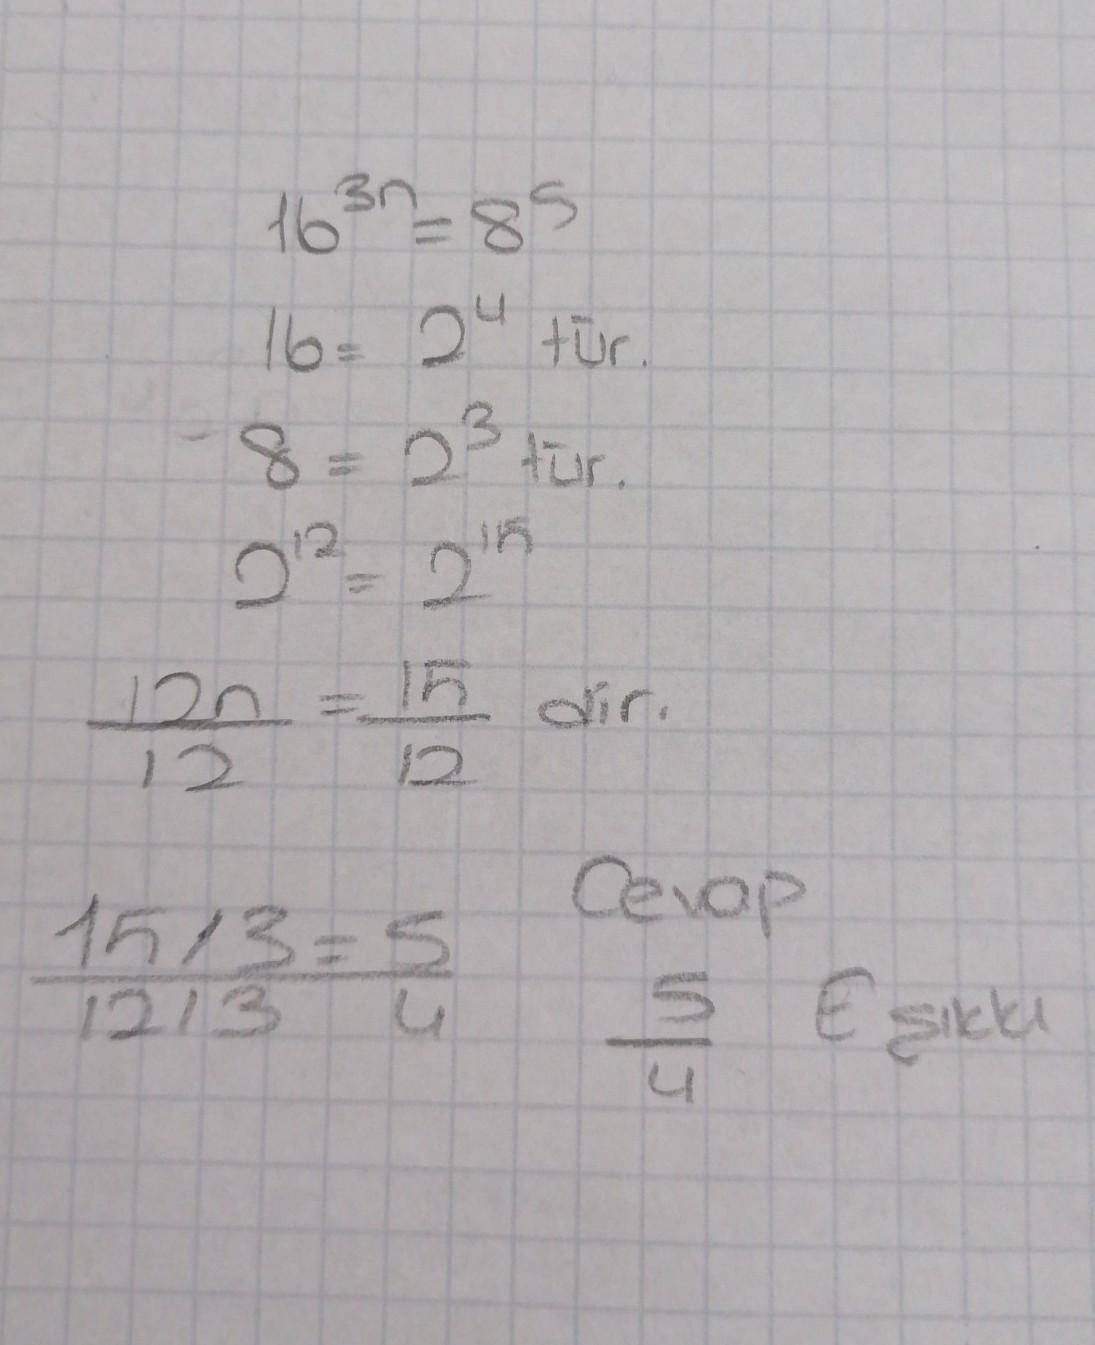 16^3n = 8^5
16 = 2^4 tür.
8 = 2^3 tür.
2^12 = 2^15
12n/12 = 15/12 dir.
15/3/12/3 = 5/4
Cevap
5/4 E şıkkı